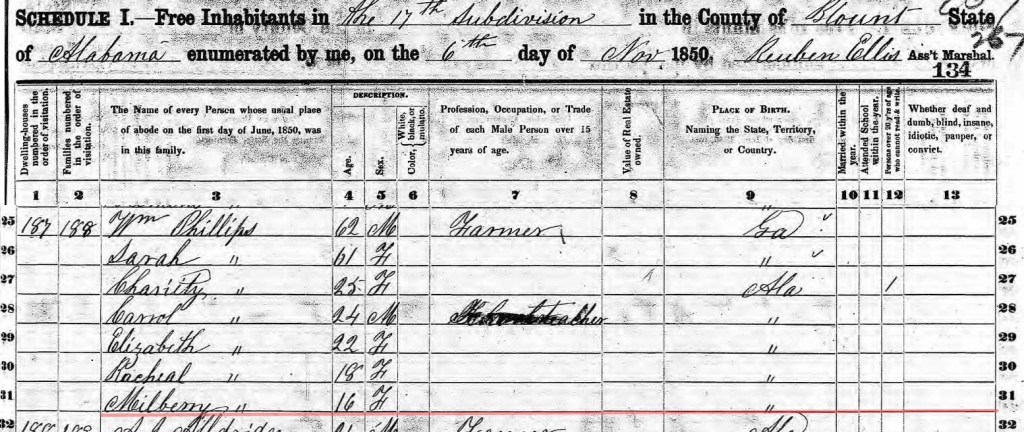 SCHEDULE I.—Free Inhabitants in the 17th Subdivision in the County of Blount State
of Alabama enumerated by me, on the 6th day of Nov. 1850. Reuben Ellis Ass't Marshal.
134
Dwelling-houses numbered in the order of visitation.
Families numbered in the order of visitation.
The Name of every Person whose usual place of abode on the first day of June, 1850, was in this family.
DESCRIPTION.
Age.
Sex.
Color, White, black, or mulatto.
Profession, Occupation, or Trade of each Male Person over 15 years of age.
Value of Real Estate owned.
PLACE OF BIRTH. Naming the State, Territory, or Country.
Married within the year.
Attended School within the year.
Persons over 20 y'rs of age who cannot read & write.
Whether deaf and dumb, blind, insane, idiotic, pauper, or convict.
1 2 3 4 5 6 7 8 9 10 11 12 13
25 187 188 Wm Phillips 62 M Farmer Ga 25
26 Sarah " 61 F " 26
27 Charity " 25 F Ala 1 27
28 Carrol " 24 M teacher " 28
29 Elizabeth " 22 F " 29
30 Racheal " 18 F " 30
31 Milberry " 16 F " 31
32 M Farmer Ala 32